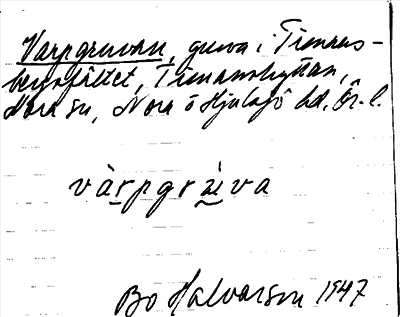 Varpgruvan, gruva i Timans-
bergsfältet, Timanshyttan,
Nora sn, Nora o Hjulsjö hd, Ör. l.
vàrpgrùva
Bo Halvarson 1947